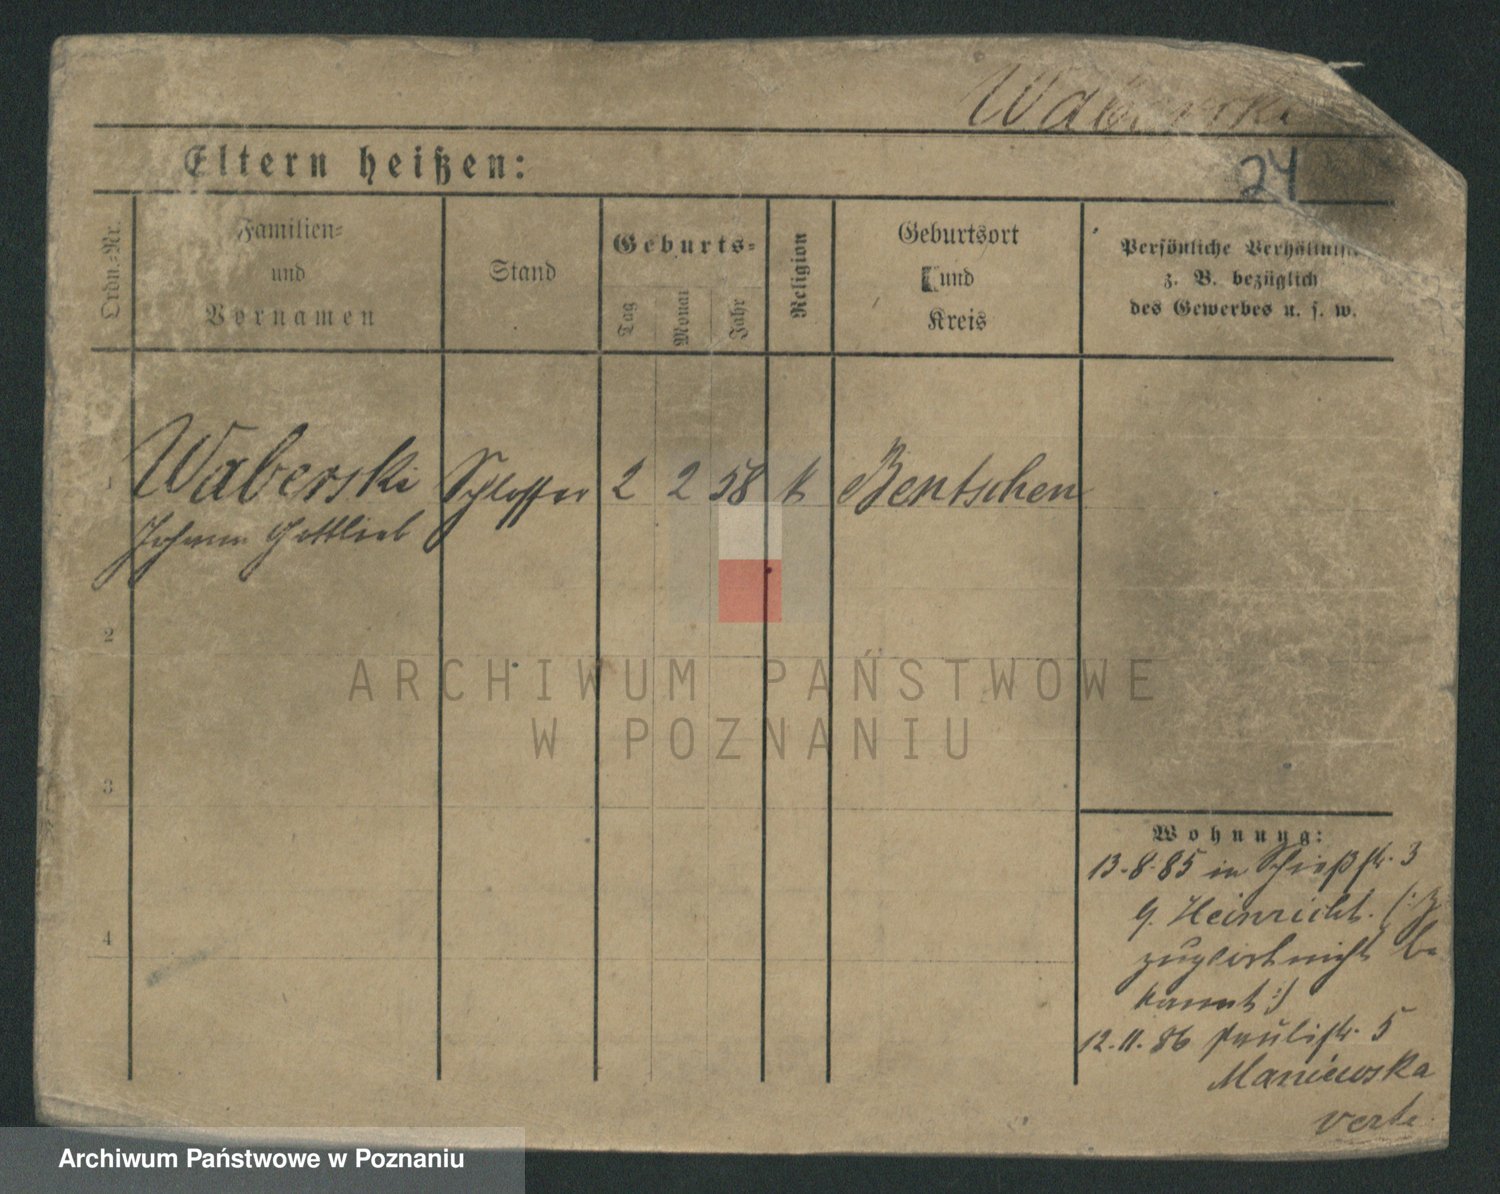 Waberski
Eltern heißen:
24
Ordn.-Nr.
Familien-
und
Vornamen
Stand
Geburts-
Tag
Monat
Jahr
Religion
Geburtsort
und
Kreis
Persönliche Verhältnisse
z. B. bezüglich
des Gewerbes u. s. w.
1 Waberski Schlosser 2 2 58 k Bentschen
Johann Gottlieb
2
3
4
Wohnung:
13.8.85 in Schießstr. 3
b. Heinricht. (:
nicht be
kannt:)
12.11.86 Paulistr. 5
Maniewska
verte
ARCHIWUM PAŃSTWOWE
W POZNANIU
Archiwum Państwowe w Poznaniu